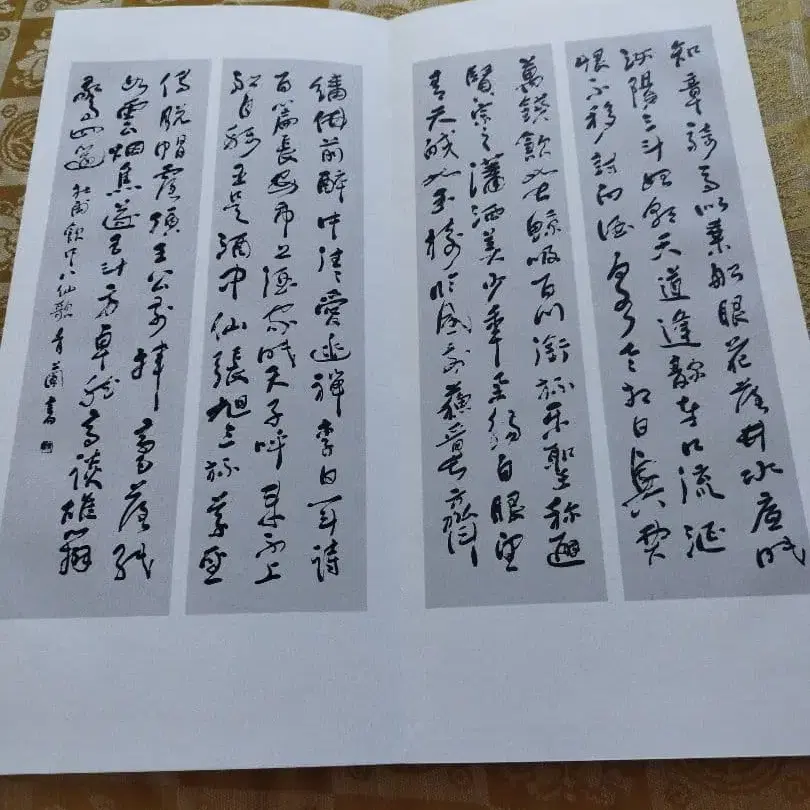 知章騎馬似乘船眼花落井水底眠
汝陽三斗始朝天道逢麴車口流涎
恨不移封向酒泉左相日興費
萬錢飲如長鯨吸百川銜杯樂聖稱避
賢宗之瀟洒美少年舉觴白眼望
青天皎如玉樹臨風前蘇晉長齋
繡佛前醉中往往愛逃禅李白一斗詩
百篇長安市上酒家眠天子呼来不上
船自稱臣是酒中仙張旭三杯草聖
傳脱帽露頂王公前揮毫落紙
如雲烟焦遂五斗方卓然高談雄辯
驚四筵 杜甫飲中八仙歌 蘭書